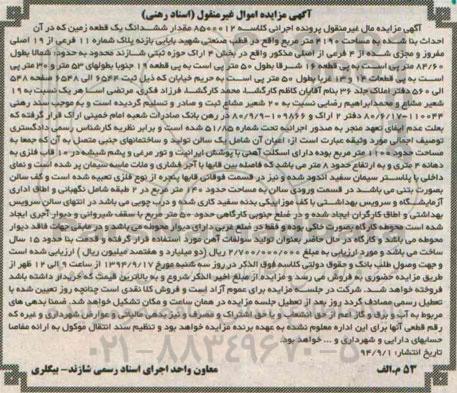 آگهی مزایده اموال غیرمنقول (اسناد رهنی)
آگهی مزایده مال غیرمنقول پرونده اجرائی کلاسه ۸۵۰۰۰۱۲ مقدار ششدانگ یک قطعه زمین که در آن
احداث بنا شده به مساحت ۲۱۹۰ متر مربع واقع در قطب صنعتی شهید بابایی بازنه پلاک شماره ۱۱ فرعی از ۱۹ اصلی
مفروز و مجزی شده از ۴ فرعی از مذکور واقع در بخش ۴ اراک حوزه ثبتی شازند محدود به حدود: شمالا بطول
۸۲/۶۰ متر پی است به پی قطعه ۱۶ شرقا بطول ۵۰ متر پی است به پی قطعه ۱۹ جنوبا بطولهای ۵۳ متر و ۳۰ متر پی
است به پی قطعات ۱۴ و ۱۳ غربا بطول ۵۰ متر پی است به حریم خیابان که ذیل ثبت ۶۵۴۴ الی ۶۵۴۸ صفحه ۵۴۸
الی ۵۶۰ دفتر املاک جلد ۳۶ بنام آقایان کاظم کارگشا، محمد کارگشا، فرزاد فکری، مرتضی اسا هر یک نسبت به ۱۹
شعیر مشاع و محمدابراهیم رضایی نسبت به ۲۰ شعیر مشاع ثبت و صادر و تسلیم گردیده است و به موجب سند رهنی
۱۱۰۰۴۴-۸۰/۶/۱۱ دفتر ۲ اراک و ۱۰۹۸۶۶-۸۰/۹/۹ در رهن بانک صادرات شعبه امام خمینی اراک قرار گرفته که
بعلت عدم ایفای تعهد منجر به صدور اجرائیه تحت شماره ۵۱/۸۵ شده است و برابر نظریه کارشناس رسمی دادگستری
توصیف اجمالی مورد وثیقه عبارت است از: اعیان آن شامل یک سالن تولید و ساختمانهای جنبی متصل به آن که جمعا به
مساحت حدود ۱۰۲۰ متر مربع بوده دارای اسکلت آهنی با پوشش ایرانیت و تور مرغی و پشم شیشه در ۱۰ قاب فلزی به
دهانه ۲ متری و به ارتفاع حدود ۸ متر می باشد که فاصله بین قابها با آجر فشاری و ملات ماسه سیمان پر شده است و نمای
داخلی با پلاستر سیمان سفید اندود شده و نیز در قسمت فوقانی قابها پنجره از نوع فلزی تعبیه شده است و کف سالن
بصورت بتنی می باشد در قسمت ورودی سالن به مساحت حدود ۱۴۰ متر مربع در ۲ طبقه شامل نگهبانی و اطاق اداری
آزمایشگاه و سرویس بهداشتی با کف موزائیکی بدنه سفید کاری شده و درب چوبی می باشد در انتهای سالن سرویس
بهداشتی و اطاق کارگران ایجاد شده و در ضلع جنوبی کارگاهی حدود ۵۰ متر مربع با سقف شیروانی و دیوار آجری ایجاد
شده است محوطه کارگاه بصورت خاکی بوده و فقط در ضلع غربی دارای دیوار محوطه می باشد و در مابقی جهات فاقد دیوار
محوطه می باشد و کارگاه در حال حاضر بعنوان تولید سولفات آهن مورد استفاده قرار گرفته و قدمت بنا حدود ۱۵ سال
ساخت می باشد و مورد ارزیابی به مبلغ ۲/۷۰۰/۰۰۰/۰۰۰ ریال (دو میلیارد و هفتصد میلیون ریال) ارزیابی شده است
و جهت وصول طلب بانک و حقوق دولتی کلاسه فوق الذکر در روز سه شنبه مورخ ۱۳۹۴/۹/۱۷ از ساعت ۹ الی ۱۲ ظهر از
طریق مزایده حضوری به فروش می رسد و مزایده از مبلغ اخیر الذکر شروع و به بالاترین قیمت که خریدار داشته باشد
فروخته خواهد شد. شرکت در جلسه مزایده برای عموم آزاد است و فروش کلا نقدی است چنانچه روز تعیین شده با
تعطیل رسمی مصادف گردد روز بعد از تعطیل جلسه مزایده در همان ساعت و مکان تشکیل خواهد شد. ضمنا بدهی های
مربوط به آب، برق و گاز اعم از حق انشعاب و یا حق اشتراک و مصرف و نیز بدهی مالیاتی و عوارض شهرداری و غیره که
رقم قطعی آنها برای این اداره معلوم نشده به عهده برنده مزایده خواهد بود و تنظیم سند انتقال موکول به ارائه مفاصا
حسابهای دارایی و شهرداری و ... خواهد بود.
تاریخ انتشار: ۹۴/۹/۱
۵۳ م.الف
معاون واحد اجرای اسناد رسمی شازند- بیگلری
۰۲۱-۸۸۳۴۹۶۷۰-۵